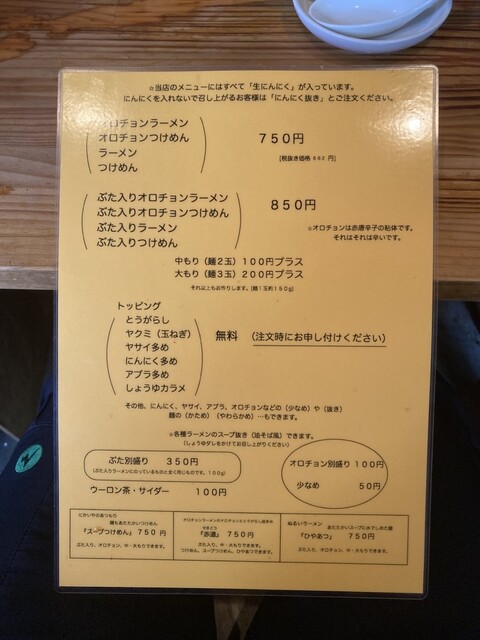 ☆当店のメニューにはすべて「生にんにく」が入っています。
にんにくを入れないで召し上がるお客様は「にんにく抜き」とご注文ください。
オロチョンラーメン
オロチョンつけめん
ラーメン
つけめん
750円
[税抜き価格682円]
ぶた入りオロチョンラーメン
ぶた入りオロチョンつけめん
ぶた入りラーメン
ぶた入りつけめん
850円
☆オロチョンは赤唐辛子の粘体です。
それはそれは辛いです。
中もり(麺2玉)100円プラス
大もり(麺3玉)200円プラス
それ以上もお作りします。[麺1玉約150g]
トッピング
とうがらし
ヤクミ(玉ねぎ)
ヤサイ多め
にんにく多め
アブラ多め
しょうゆカラメ
無料 (注文時にお申し付けください)
その他、にんにく、ヤサイ、アブラ、オロチョンなどの(少なめ)や(抜き)
麺の(かため)(やわらかめ)…もできます。
☆各種ラーメンのスープ抜き(油そば風)できます。
(しょうゆダレをかけてお召し上がりください)
ぶた別盛り 350円
(ぶた入りラーメンにのっているものと全く同じものです。100g)
ウーロン茶・サイダー 100円
オロチョン別盛り 100円
少なめ 50円
にかいやのあつもり
麺もあたたかいつけめん
『スープつけめん』750円
ぶた入り、オロチョン、中・大もりできます。
せきどう
『赤道』750円
ぶた入り、中・大もりできます。
つけめん、スープつけめん、ひやあつできます。
ぬるいラーメン
あたたかいスープに水でしめた麺
『ひやあつ』 750円
ぶた入り、オロチョン、中・大もりできます。